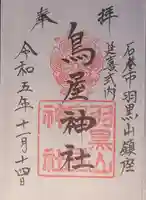 奉拝
石巻市 羽黒山鎮座
延喜式内
鳥屋神社
令和五年十一月十四日